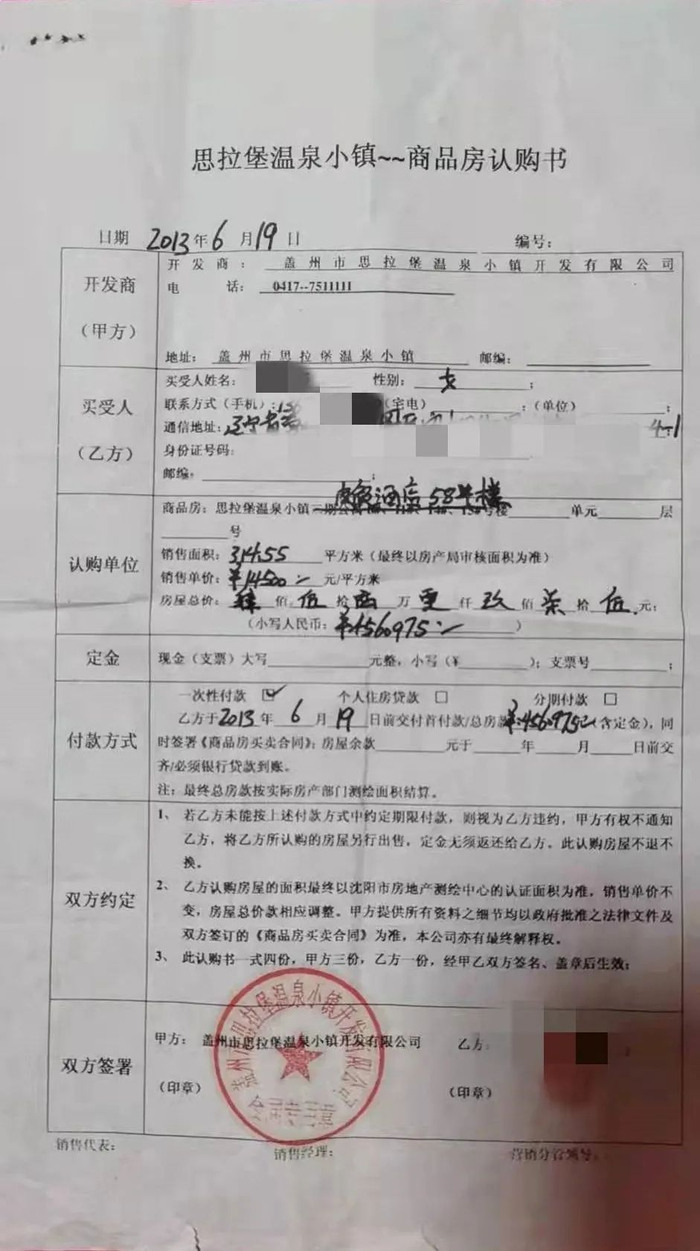 思拉堡温泉小镇~~商品房认购书
日期 2013年6月19日 编号:
开发商
(甲方)
开发商: 盖州市思拉堡温泉小镇开发有限公司
电话: 0417--7511111
地址: 盖州市思拉堡温泉小镇 邮编:
买受人
(乙方)
买受人姓名: 性别: 女 ;
联系方式(手机): (宅电) :(单位) ;
通信地址: 辽宁省 4-1
身份证号码:
邮编: ;
认购单位
酒店58号楼
商品房:思拉堡温泉小镇 单元 层
号
销售面积: 314.55 平方米(最终以房产局审核面积为准)
销售单价: ¥14500:- 元/平方米
房屋总价: 肆佰伍拾 万零仟玖佰柒拾伍元;
(小写人民币: ¥4560975:- )
定金
现金(支票)大写 元整,小写(¥ );支票号 ;
付款方式
一次性付款 ☑ 个人住房贷款 □ 分期付款 □
乙方于2013年6月19日前交付首付款/总房款¥:4560975 (含定金),同
时签署《商品房买卖合同》;房屋余款 元于 年 月 日前交
齐/必须银行贷款到账。
注:最终总房款按实际房产部门测绘面积结算。
双方约定
1、若乙方未能按上述付款方式中约定期限付款,则视为乙方违约,甲方有权不通知
乙方,将乙方所认购的房屋另行出售,定金无须返还给乙方。此认购房屋不退不
换。
2、乙方认购房屋的面积最终以沈阳市房地产测绘中心的认证面积为准,销售单价不
变,房屋总价款相应调整。甲方提供所有资料之细节均以政府批准之法律文件及
双方签订的《商品房买卖合同》为准,本公司亦有最终解释权。
3、此认购书一式四份,甲方三份,乙方一份,经甲乙双方签名、盖章后生效;
双方签署
甲方: 盖州市思拉堡温泉小镇开发有限公司 乙方:
(印章) (印章)
盖州市思拉堡温泉小镇开发有限公司
合同专用章
销售代表: 销售经理: 营销分管领导: